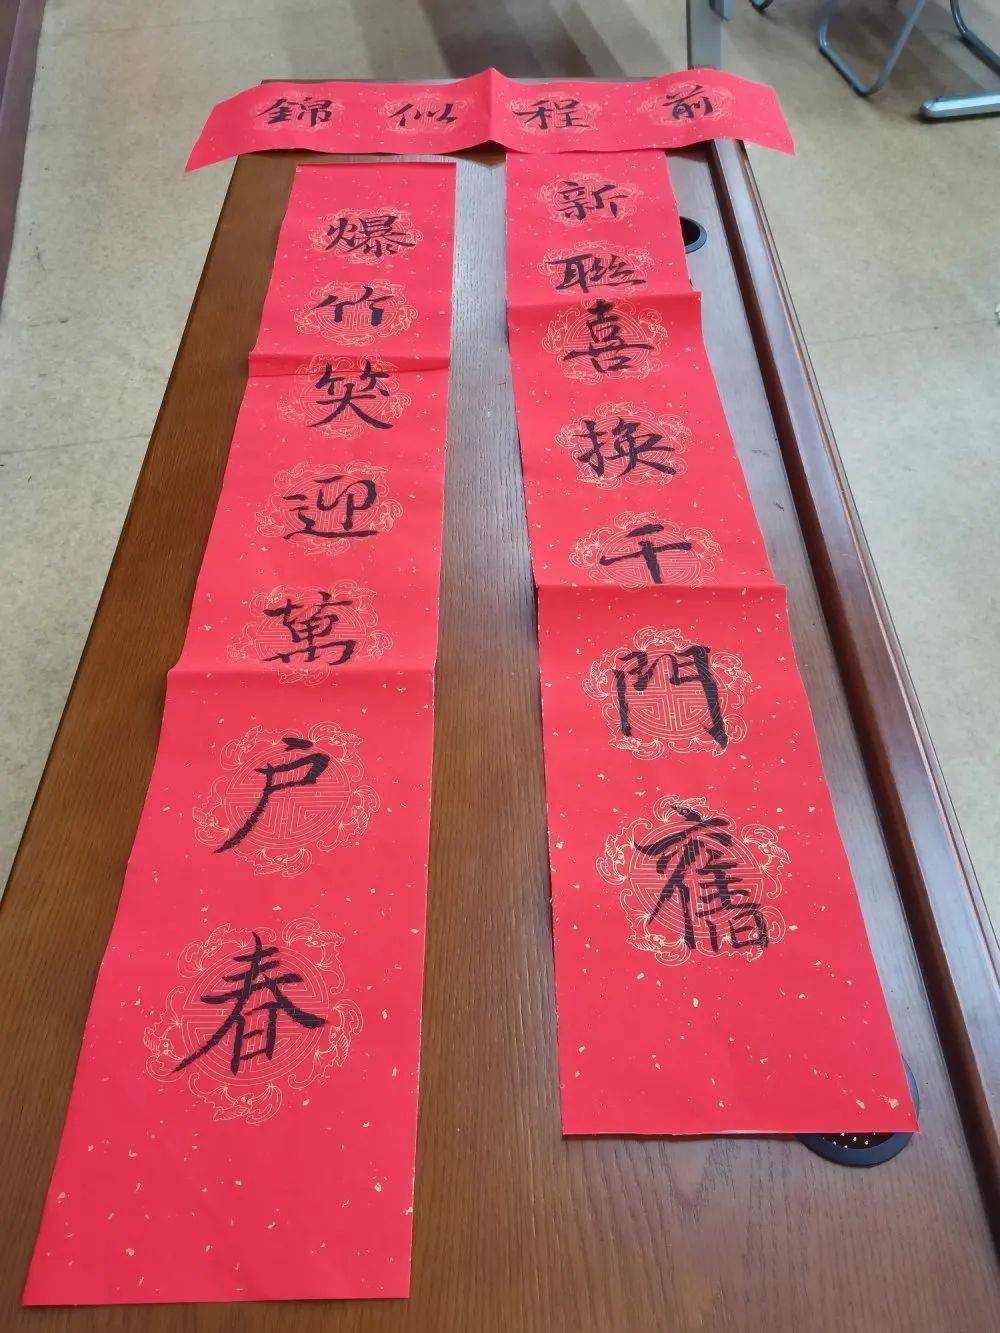 前程似錦
新聯喜換千門舊
爆竹笑迎萬户春